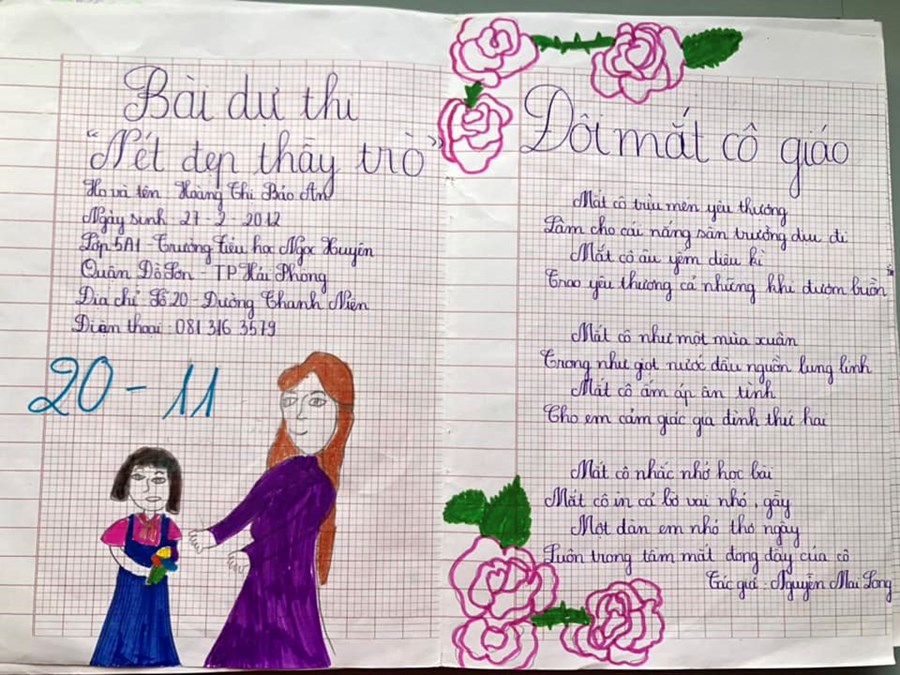 Bài dự thi
"Nét đẹp thầy trò"
Họ và tên Hoàng Thị Bảo An
Ngày sinh - 27 - 2 - 2012
Lớp 5A1 - Trường Tiểu học Ngọc Xuyên
Quận Đồ Sơn - TP Hải Phòng
Địa chỉ Số 20 - Đường Thanh Niên
Điện thoại : 081 316 3579
20 - 11
Đôi mắt cô giáo
Mắt cô trìu mến yêu thương
Làm cho cái nắng sân trường dịu đi
Mắt cô âu yếm diệu kì
Trao yêu thương cả những khi đượm buồn
Mắt cô như một mùa xuân
Trong như giọt nước đầu nguồn lung linh
Mắt cô ấm áp ân tình
Cho em cảm giác gia đình thứ hai
Mắt cô nhắc nhở học bài
Mắt cô in cả bờ vai nhỏ, gầy
Một đàn em nhỏ thơ ngây
Luôn trong tầm mắt đong đầy của cô
Tác giả : Nguyễn Mai Long